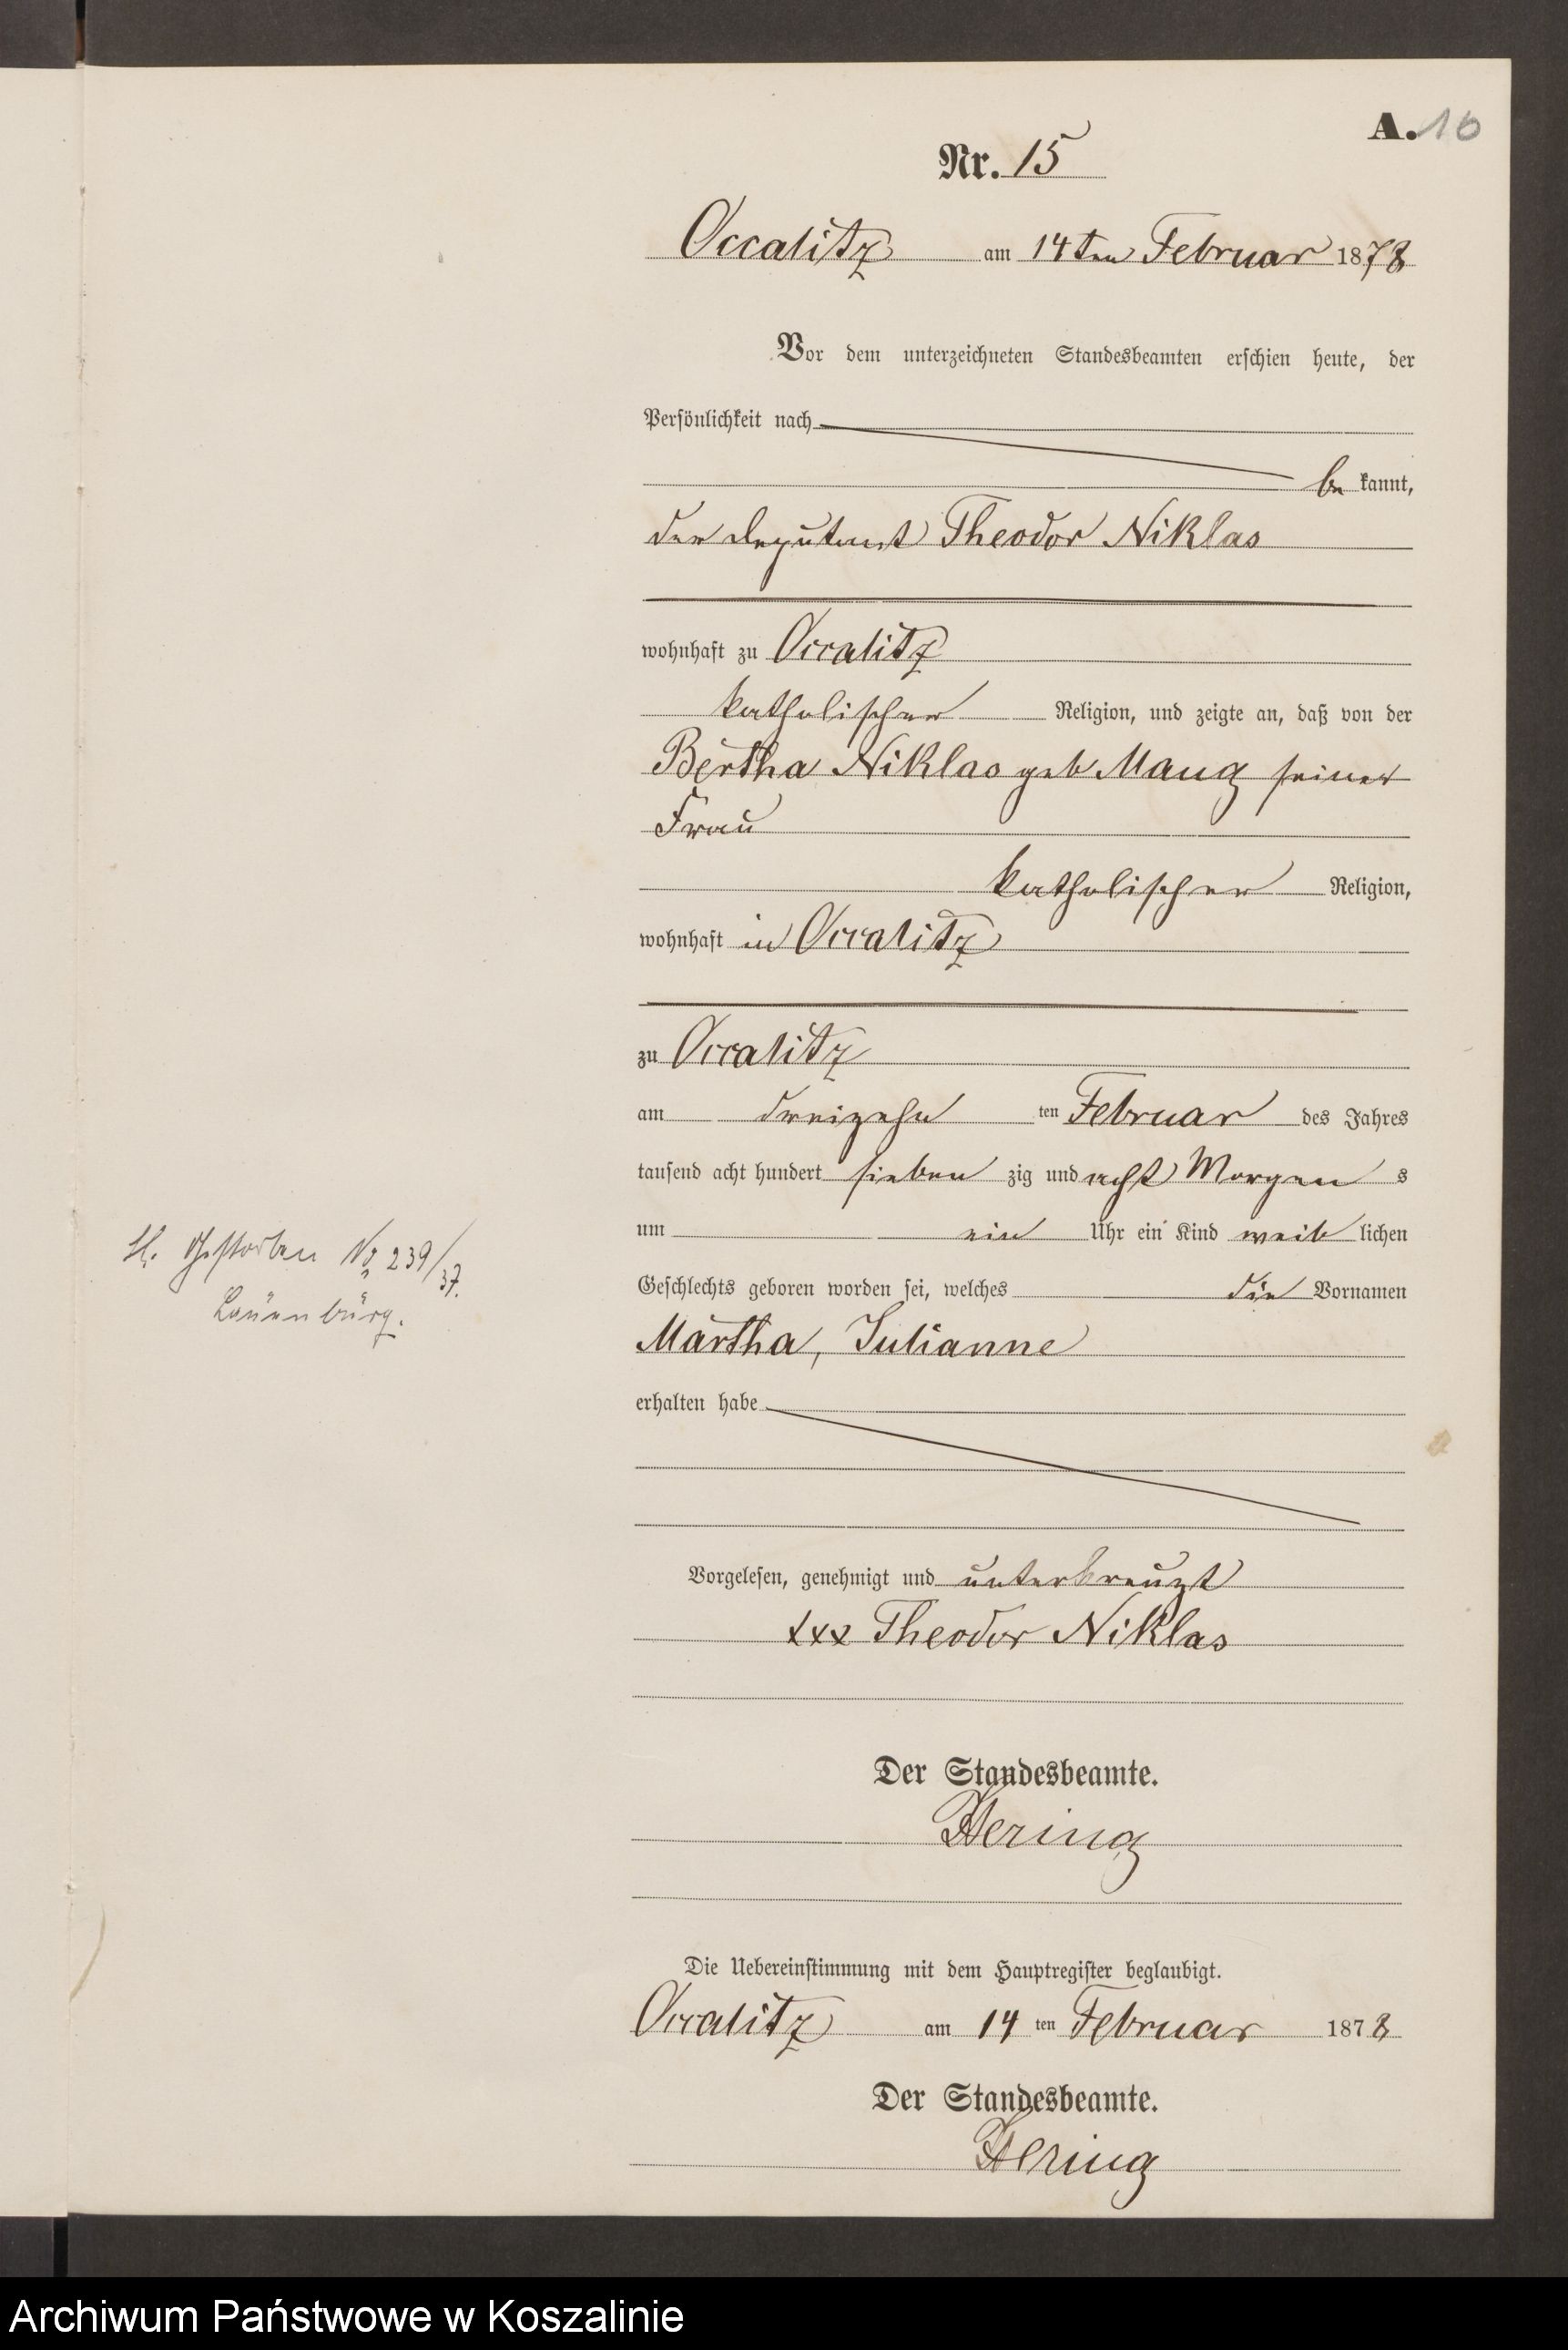 A. 16
Nr. 15
Occalitz am 14ten Februar 1878
Vor dem unterzeichneten Standesbeamten erschien heute, der
Persönlichkeit nach
be kannt,
der Deputant Theodor Niklas
wohnhaft zu Occalitz
katholischer Religion, und zeigte an, daß von der
Bertha Niklas geb Maug seiner
Frau
katholischer Religion,
wohnhaft in Occalitz
zu Occalitz
am dreizehn ten Februar des Jahres
tausend acht hundert sieben zig und acht Morgen s
um ein Uhr ein Kind weib lichen
Geschlechts geboren worden sei, welches die Vornamen
Martha, Julianne
erhalten habe
Gestorben No 239/37.
Lauenburg.
Vorgelesen, genehmigt und unterkreuzt
xxx Theodor Niklas
Der Standesbeamte.
Hering
Die Uebereinstimmung mit dem Hauptregister beglaubigt.
Occalitz am 14 ten Februar 1878
Der Standesbeamte.
Hering
Archiwum Państwowe w Koszalinie